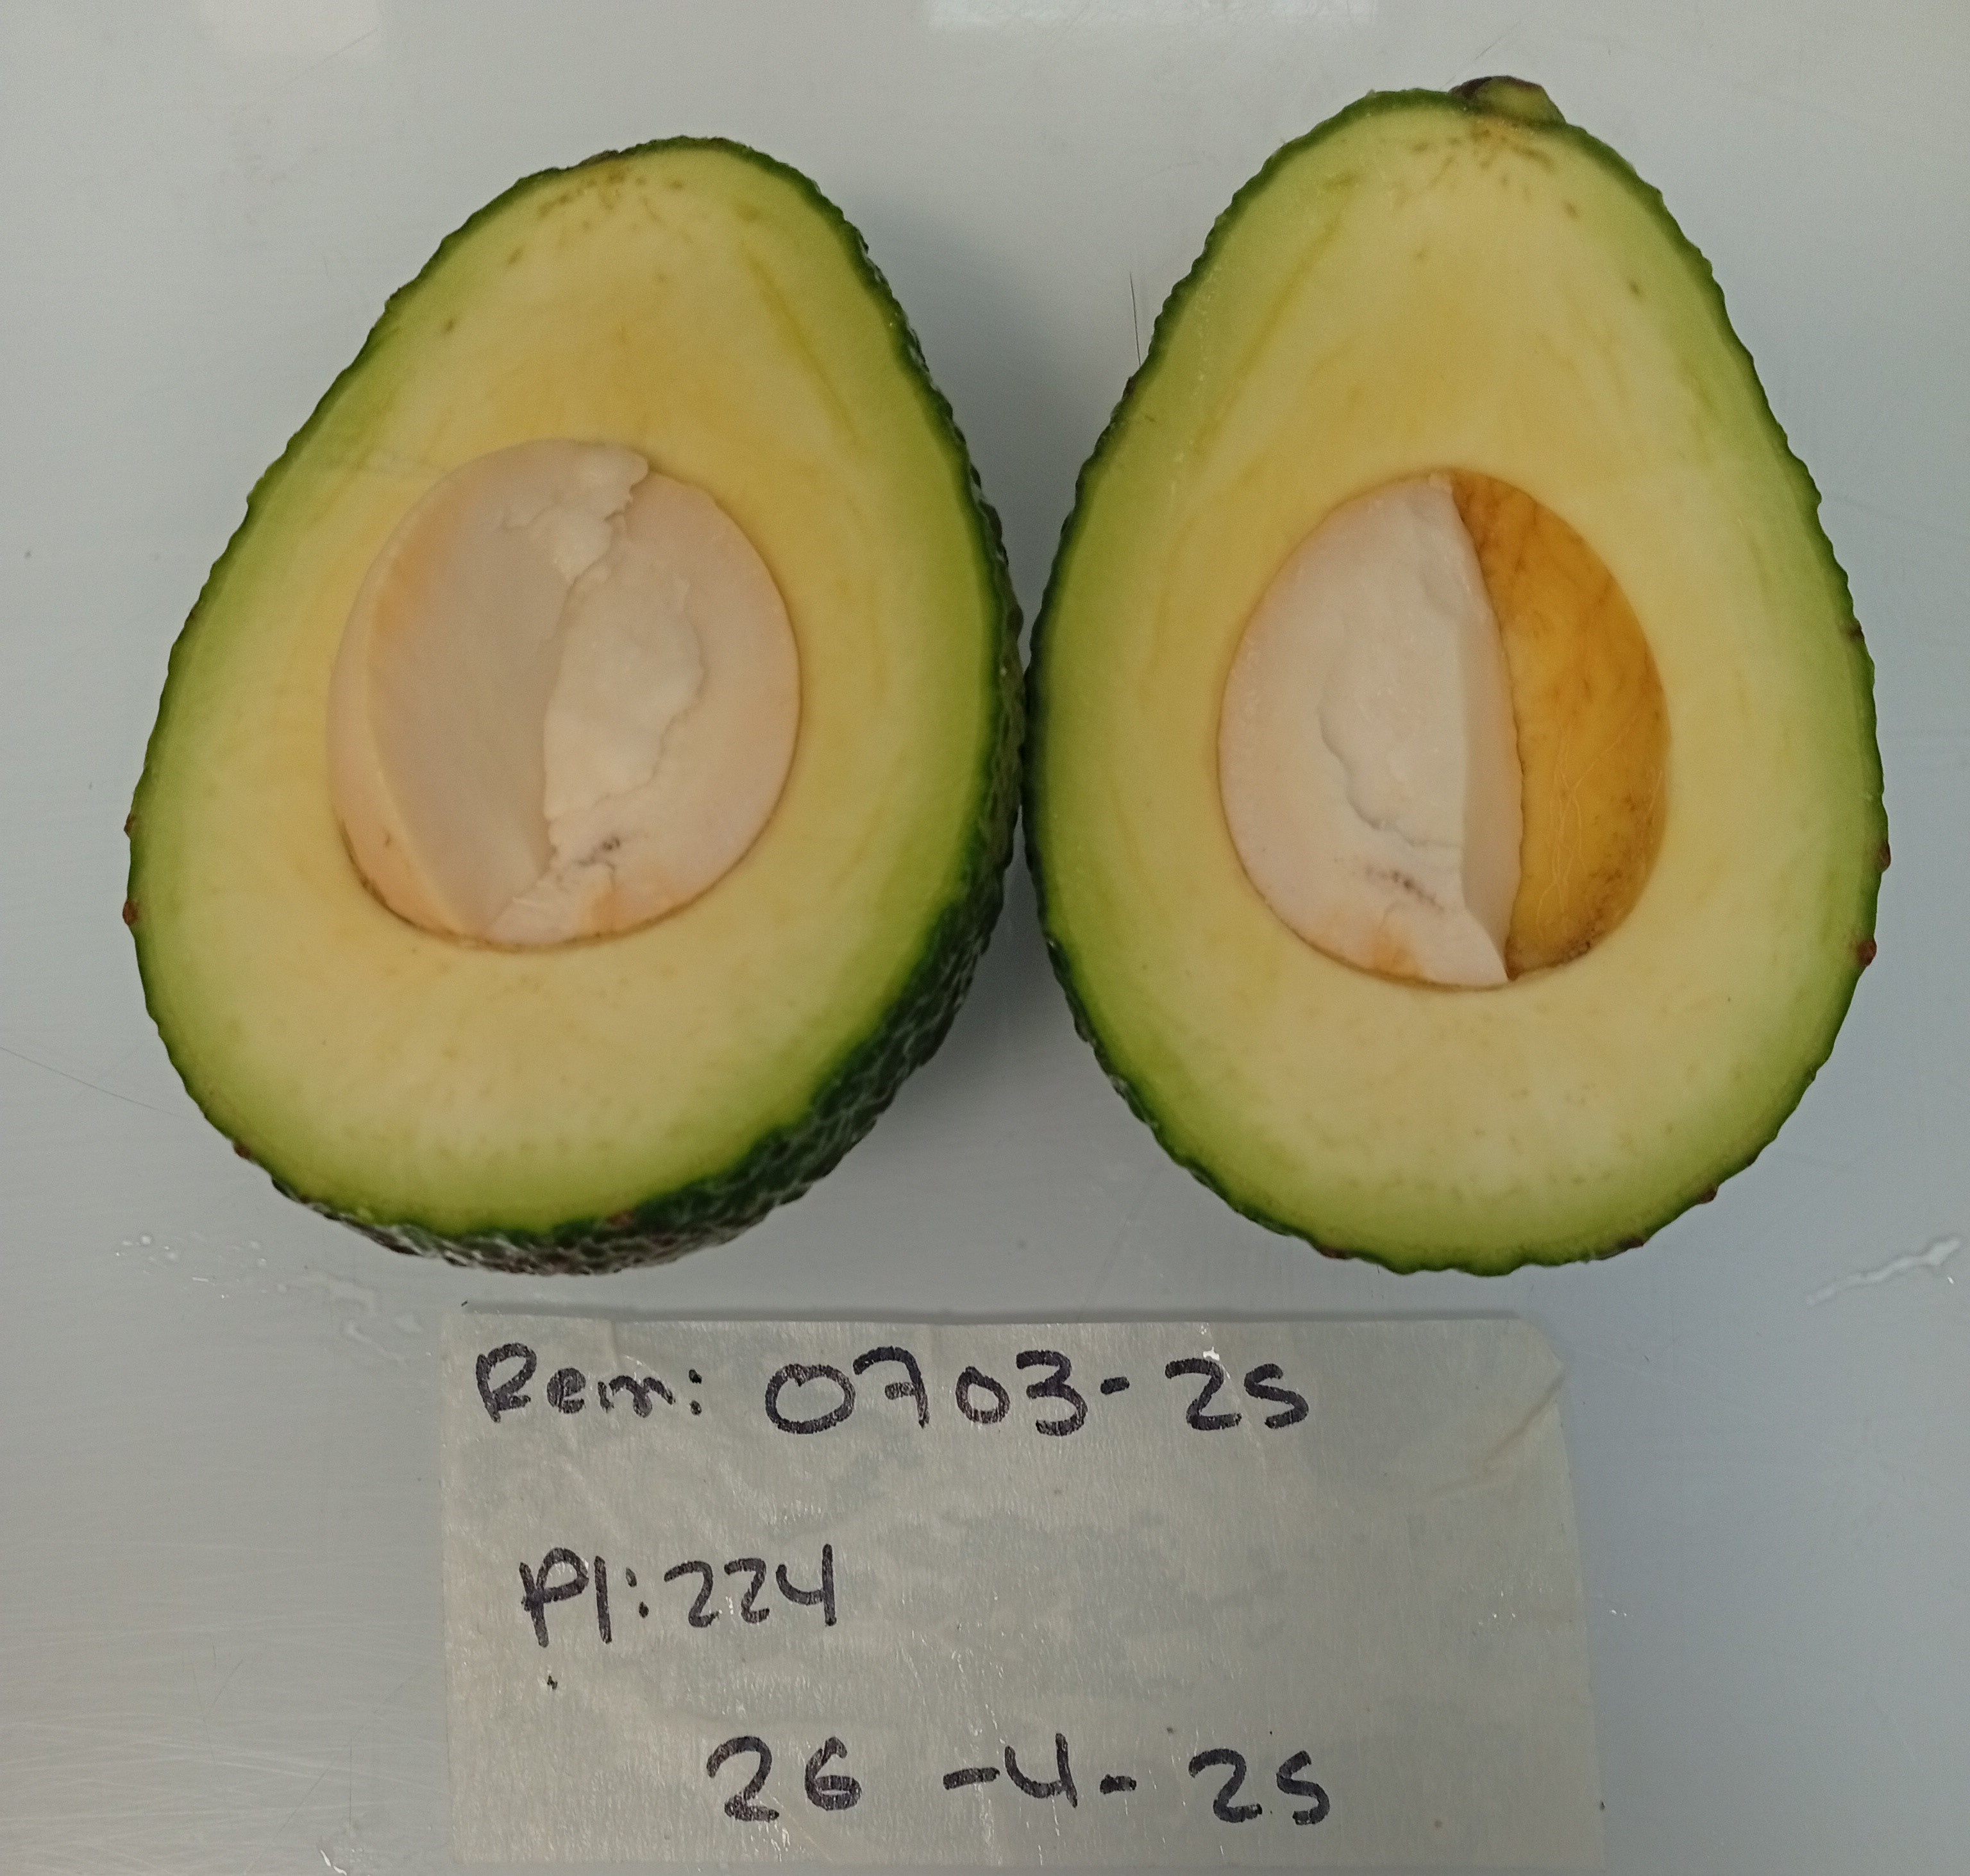 Rem: 0703-25
Pl: 224
26-4-25